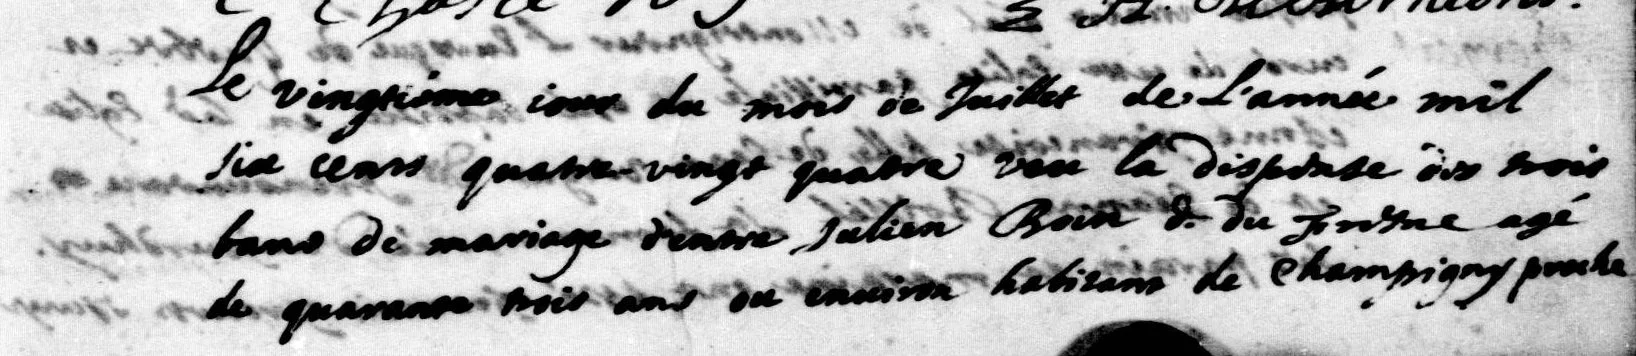 Le vingtiéme iour du mois de Juillet de L'année mil
six cents quatre-vingt quatre veu la dispense des trois
bans de mariage d'entre Julien Boin d. du fresne agé
de quarante trois ans ou environ habitant de Champigny proche